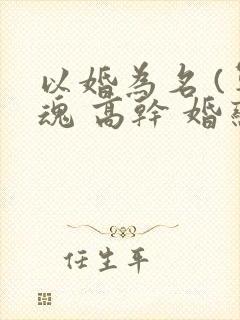 以婚為名(
魂 高幹 婚
任生平